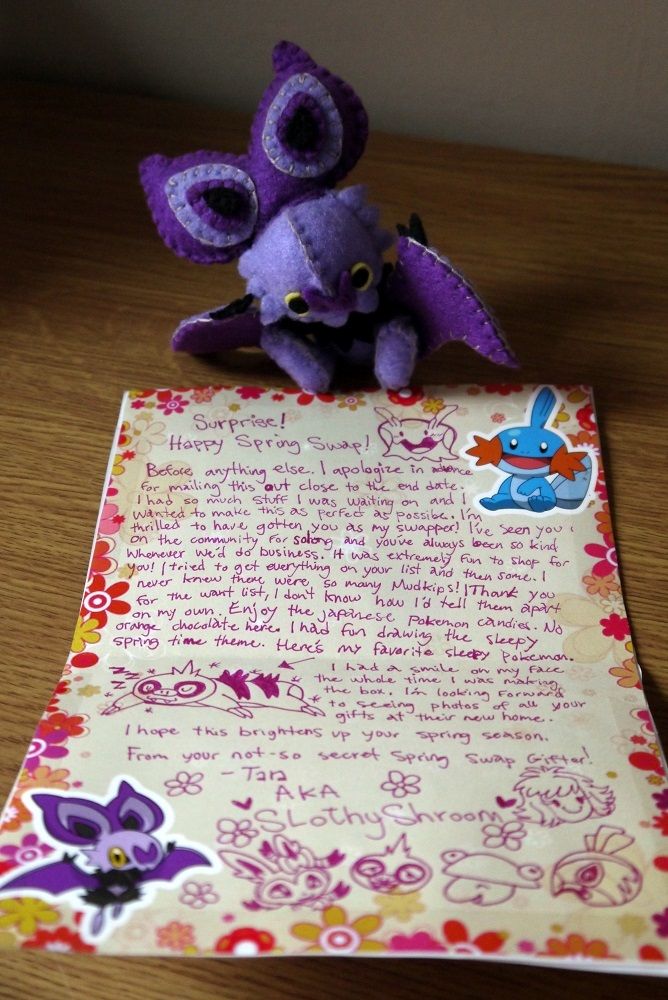 Surprise!
Happy Spring Swap!
Before anything else. I apologize in advance
for mailing this out close to the end date.
I had so much stuff I was waiting on and I
wanted to make this as perfect as possible. I'm
thrilled to have gotten you as my swapper! I've seen you
on the community for solong and you've always been so kind
whenever we'd do business. It was extremely fun to shop for
you! I tried to get everything on your list and then some. I
never knew there were so many Mudkips! Thank you
for the want list, I don't know how I'd tell them apart
on my own. Enjoy the japanese Pokemon candies. No
orange chocolate here. I had fun drawing the sleepy
spring time theme. Here's my favorite sleepy pokemon.
I had a smile on my face
the whole time I was making
the box. I'm looking forward
to seeing photos of all your
gifts at their new home.
I hope this brightens up your spring season.
From your not-so secret Spring Swap Gifter!
-Tara
AKA
SlothyShroom